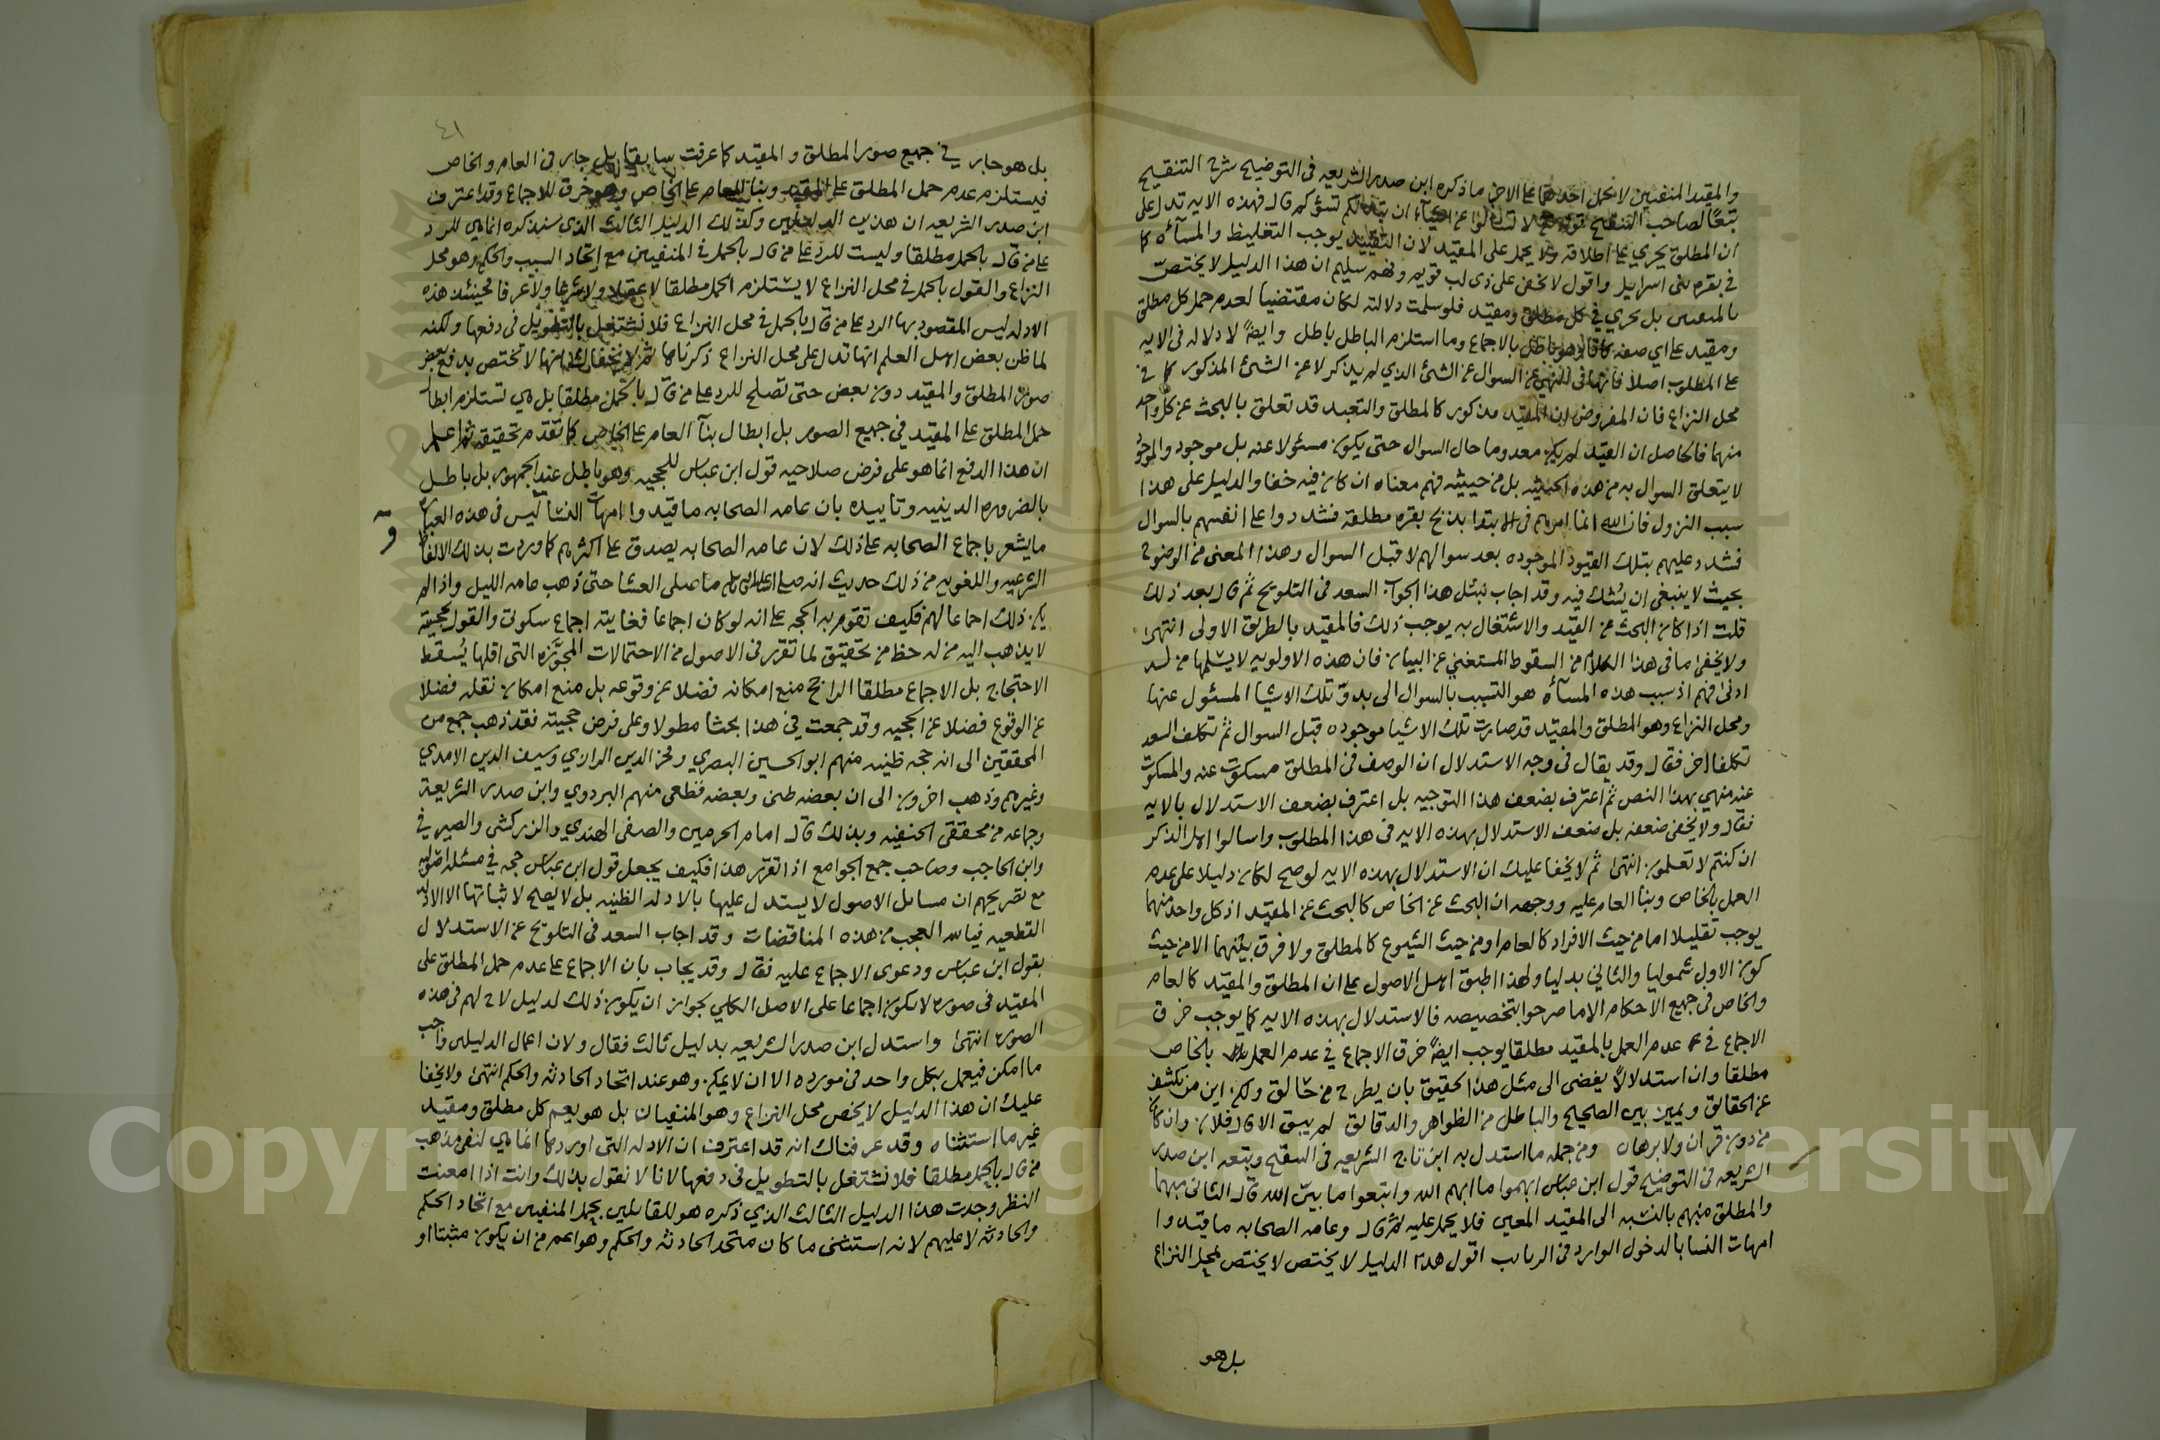 والمقيد المنفيين لا نحمل احدهما على الاخر ما ذكره ابن صدر الشريعه في التوضيح شرح التنقيح
تبعًا لصاحب التنقيح قوله تعالى لا تسألوا عن اشيآء ان تبد لكم تسؤكم قال فهذه الايه تدل على
ان المطلق يجري على اطلاقه ولا يحمل على المقيد لان التقييد يوجب التغليظ والمسآءة كما
في بقره بني اسرايل واقول لا يخفى على ذي لب قويم وفهم سليم ان هذا الدليل لا يختص
بالمنفيين بل يجري في كل مطلق ومقيد فلو سلمت دلالته لكان مقتضيا لعدم حمل كل مطلق
ومقيد على اي صفه كانا وهو باطل بالاجماع وما استلزم الباطل باطل وايضًا لا دلاله في الايه
على المطلوب اصلا فانها في النهي عن السوال عن الشئ الذي لم يذكر لا عن الشئ المذكور كما في
محل النزاع فان المفروض ان المقيد مذكور كالمطلق والتعبد قد تعلق بالبحث عن كل واحد
منهما فالحاصل ان القيد لم يكن معدوما حال السوال حتى يكون مسئولا عنه بل موجود والموجود
لا يتعلق السوال به من هذه الحيثيه بل من حيثيه فهم معناه ان كان فيه خفا والدليل على هذا
سبب النزول فان الله انما امرهم في الابتدا بذبح بقره مطلقة فشددوا على انفسهم بالسوال
فشدد عليهم بتلك القيود الموجوده بعد سوالهم لا قبل السوال وهذا المعنى من الوضوح
بحيث لا ينبغي ان يُشك فيه وقد اجاب بمثل هذا الجواب السعد في التلويح ثم قال بعد ذلك
قلت اذا كان البحث عن القيد والاشتغال به يوجب ذلك فالمقيد بالطريق الاولى انتهى
ولا يخفى ما في هذا الكلام من السقوط المستغني عن البيان فان هذه الاولويه لا يسلمها من له
ادنى فهم اذ سبب هذه المسآة هو التسبب بالسوال الى بدو تلك الاشيا المسئول عنها
ومحل النزاع وهو المطلق والمقيد قد صارت تلك الاشيا موجوده قبل السوال ثم تكلف السعد
تكلفا اخر فقال وقد يقال في وجه الاستدلال ان الوصف في المطلق مسكوت عنه والمسكوت
عنه منهي بهذا النص ثم اعترف بضعف هذا التوجيه بل اعترف بضعف الاستدلال بالايه
فقال ولا يخفى ضعفه بل ضعف الاستدلال بهذه الايه في هذا المطلوب واسالوا اهل الذكر
ان كنتم لا تعلمون انتهى ثم لا يخفا عليك ان الاستدلال بهذه الايه لو صح لكان دليلا على عدم
العمل بالخاص وبنا العام عليه ووجهه ان البحث عن الخاص كالبحث عن المقيد اذ كل واحد منهما
يوجب تقليلا اما من حيث الافراد كالعام او من حيث الشيوع كالمطلق ولا فرق بينهما الا من حيث
كون الاول شموليا والثاني بدليا ولهذا اطبق اهل الاصول على ان المطلق والمقيد كالعام
والخاص في جميع الاحكام الا ما صرحوا بتخصيصه فالاستدلال بهذه الايه كما يوجب خرق
الاجماع في عدم العمل بالمقيد مطلقا يوجب ايضًا خرق الاجماع في عدم العمل بالخاص
مطلقا وان استدلالاً يفضى الى مثل هذا لحقيق بان يطرح من حالق ولكن اين من يكشف
عن الحقايق ويميز بين الصحيح والباطل من الظواهر والدقايق لم يبق الا قال فلان وان كان
من دون قران ولا برهان ومن جمله ما استدل به ابن تاج الشريعه في التنقيح وتبعه ابن صدر
الشريعه في التوضيح قول ابن عباس ابهموا ما ابهم الله واتبعوا ما بيّن الله قال الثاني منهما
والمطلق مبهم بالنسبه الى المقيد المعين فلا يحمل عليه ثم قال وعامه الصحابه ما قيدوا
امهات النسا بالدخول الوارد في الربايب اقول هذا الدليل لا يختص لا يختص بمحل النزاع
بل هو
٤١
بل هو جار في جميع صور المطلق والمقيد كما عرفت سابقا بل جار في العام والخاص
فيستلزم عدم حمل المطلق على المقيد وبنا العام على الخاص وهو خرق للاجماع وقد اعترف
ابن صدر الشريعه ان هذين الدليلين وكذلك الدليل الثالث الذي سنذكره انما هي للرد
على من قال بالحمل مطلقا وليست للرد على من قال بالحمل في المنفيين مع اتحاد السبب والحكم وهو محل
النزاع والقول بالحمل في محل النزاع لا يستلزم الحمل مطلقا لا عقلا ولا شرعا ولا عرفا فحينئذ هذه
الادله ليس المقصود بها الرد على من قال بالحمل في محل النزاع فلا نشتغل بالتطويل في دفعها ولكنه
لما ظن بعض اهل العلم انها تدل على محل النزاع ذكرناها ثم لا يخفاك انها لا تختص بدفع بعض
صور المطلق والمقيد دون بعض حتى تصلح للرد على من قال بالحمل مطلقا بل هي تستلزم ابطال
حمل المطلق على المقيد في جميع الصور بل ابطال بنآ العام على الخاص كما تقدم تحقيقه ثم اعلم
ان هذا الدفع انما هو على فرض صلاحيه قول ابن عباس للحجيه وهو باطل عند الجمهور بل باطل
بالضروره الدينيه وتاييده بان عامه الصحابه ما قيدوا امهات النسآ ليس في هذه العباره
ما يشعر باجماع الصحابه على ذلك لان عامه الصحابه يصدق على اكثرهم كما وردت بذلك الالفاظ
الشرعيه واللغويه من ذلك حديث انه صلى الله عليه وسلم ما صلى العشا حتى ذهب عامه الليل واذا لم
يكن ذلك اجماعا لهم فكيف تقوم به الحجه على انه لو كان اجماعا فغايته اجماع سكوتي والقول بحجيته
لا يذهب اليه من له حظ من تحقيق لما تقرر في الاصول من الاحتمالات المجوّزه التي اقلها يُسقط
الاحتجاج بل الاجماع مطلقا الراجح منع امكانه فضلا عن وقوعه بل منع امكان نقله فضلا
عن الوقوع فضلا عن الحجيه وقد جمعت في هذا بحثا مطولا وعلى فرض حجيته فقد ذهب جمع من
المحققين الى انه حجه ظنيه منهم ابو الحسين البصري وفخر الدين الرازي وسيف الدين الامدي
وغيرهم وذهب اخرون الى ان بعضه ظني وبعضه قطعي منهم البزدوي وابن صدر الشريعة
وجماعه من محققي الحنفيه وبذلك قال امام الحرمين والصفي الهندي والزركشي والصيرفي
وابن الحاجب وصاحب جمع الجوامع اذا تقرر هذا فكيف يجعل قول ابن عباس حجه في مسئله اصوليه
مع تصريحهم ان مسايل الاصول لا يستدل عليها بالادله الظنيه بل لا يصح لاثباتها الا الادله
القطعيه فيالله العجب من هذه المناقضات وقد اجاب السعد في التلويح عن الاستدلال
بقول ابن عباس ودعوى الاجماع عليه فقال وقد يجاب بان الاجماع على عدم حمل المطلق على
المقيد في صوره لا يكون اجماعا على الاصل الكلي لجواز ان يكون ذلك لدليل لاح لهم في هذه
الصوره انتهى واستدل ابن صدر الشريعه بدليل ثالث فقال ولان اعمال الدليلين واجب
ما امكن فيعمل بكل واحد في مورده الا ان لا يمكن وهو عند اتحاد الحادثه والحكم انتهى ولا يخفا
عليك ان هذا الدليل لا يخص محل النزاع وهو المنفيان بل هو يعم كل مطلق ومقيد
غير ما استثناه وقد عرفناك انه قد اعترف ان الادله التي اوردها انما هي لنفي مذهب
من قال بالحمل مطلقا فلا نشتغل بالتطويل في دفعها لانا لا نقول بذلك وانت اذا امعنت
النظر وجدت هذا الدليل الثالث الذي ذكره هو للقايلين بحمل المنفيين مع اتحاد الحكم
والحادثه لا عليهم لانه استثنى ما كان متحد الحادثه والحكم وهو اعم من ان يكون مثبتا او